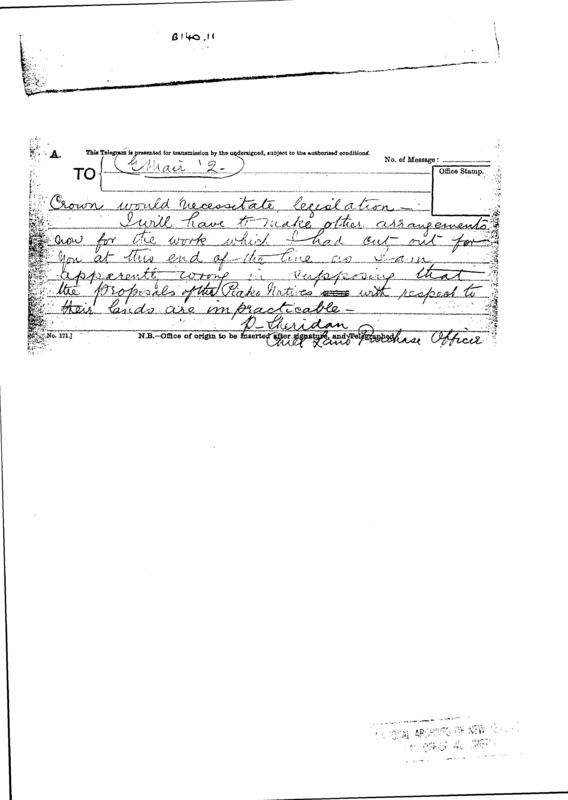 B140.11
A.
This Telegram is presented for transmission by the undersigned, subject to the authorised conditions.
No. of Message:
TO
G Mair '2 -
Office Stamp.
Crown would necessitate legislation —
I will have to make other arrangements
now for the work which I had cut out for
you at this end of the line as I am
apparently wrong in supposing that
the proposals of the Piako Natives with respect to
their lands are impracticable —
P. Sheridan
No. 171.]
N.B.—Office of origin to be inserted after signature, and Telegraphed.
Chief Land Purchase Officer
ARCHIVES OF NEW